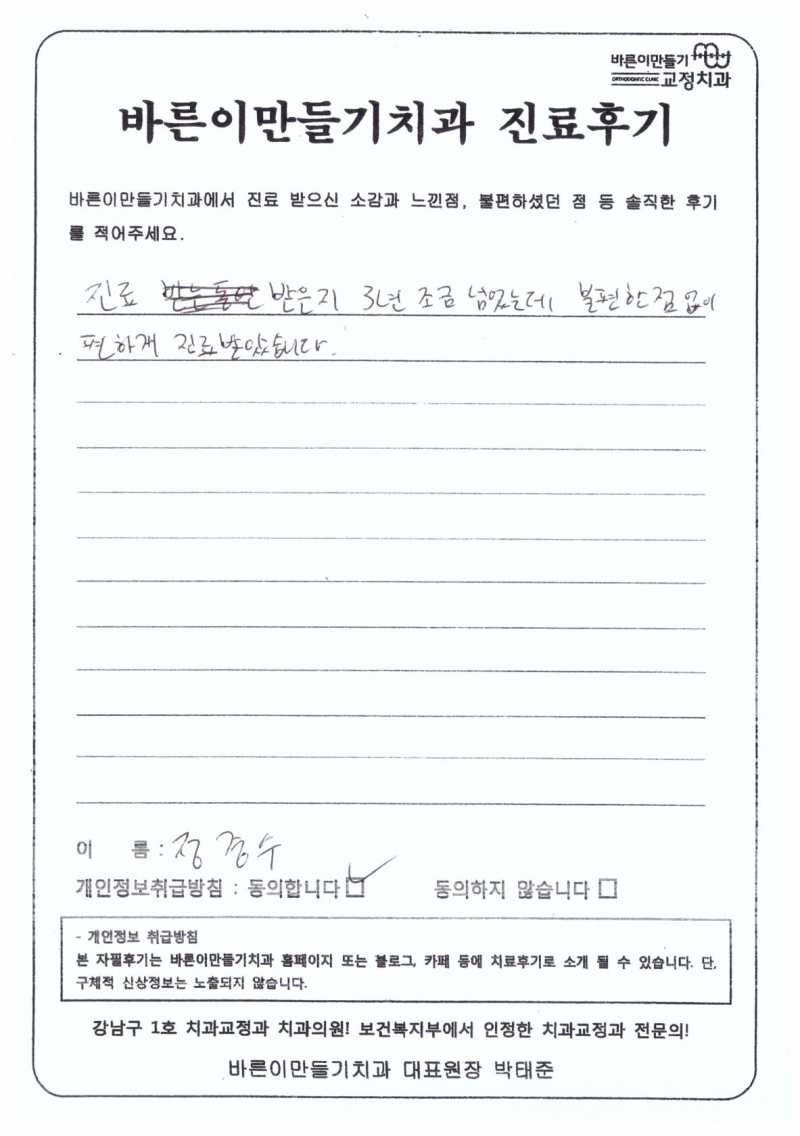 바른이만들기
ORTHODONTIC CLINIC 교정치과
바른이만들기치과 진료후기
바른이만들기치과에서 진료 받으신 소감과 느낀점, 불편하셨던 점 등 솔직한 후기
를 적어주세요.
진료 받는동안 받은지 3년 조금 넘었는데, 불편한점 없이
편하게 진료받았습니다.
이 름 : 정경수
개인정보취급방침 : 동의합니다 ☑ 동의하지 않습니다 □
- 개인정보 취급방침
본 자필후기는 바른이만들기치과 홈페이지 또는 블로그, 카페 등에 치료후기로 소개 될 수 있습니다. 단,
구체적 신상정보는 노출되지 않습니다.
강남구 1호 치과교정과 치과의원! 보건복지부에서 인정한 치과교정과 전문의!
바른이만들기치과 대표원장 박태준